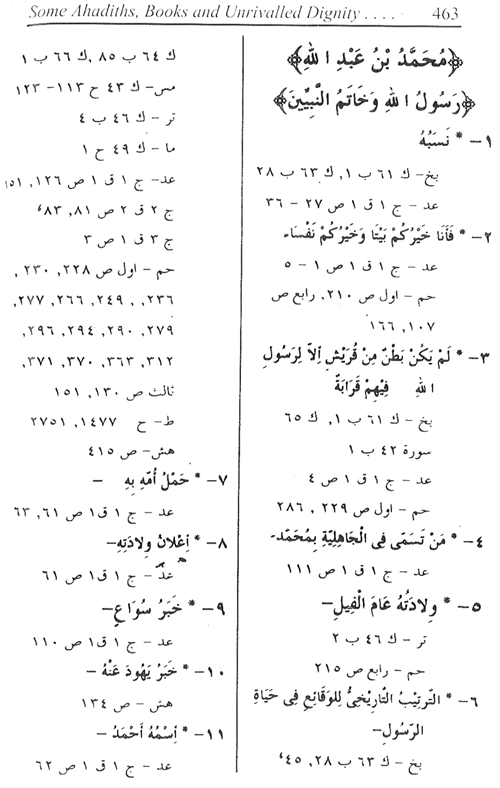 Some Ahadiths, Books and Unrivalled Dignity . . . . 463
﴿مُحَمَّدُ بْنُ عَبْدِ اللهِ﴾
﴿رَسُولُ اللهِ وَخَاتَمُ النَّبِيِّينَ﴾
١- * نَسَبُهُ
بخ- ك ٦١ ب ١, ك ٦٣ ب ٢٨
عد - ج ١ ق ١ ص ٢٧ - ٣٦
٢- * فَأَنَا خَيْرُكُمْ بَيْتًا وَخَيْرُكُمْ نَفْسًا-
عد - ج ١ ق ١ ص ١ - ٥
حم - اول ص ٢١٠, رابع ص
١٠٧, ١٦٦
٣- * لَمْ يَكُنْ بَطْنٌ مِنْ قُرَيْشٍ اِلاَّ لِرَسُولِ
اللهِ فِيهِمْ قَرَابَةٌ
بخ - ك ٦١ ب ١, ك ٦٥
سورة ٤٢ ب ١
عد - ج ١ ق ١ ص ٤
حم - اول ص ٢٢٩, ٢٨٦
٤- * مَنْ تَسَمَّى فِى الْجَاهِلِيَّةِ بِمُحَمَّد-
عد - ج ١ ق ١ ص ١١١
٥- * وِلاَدَتُهُ عَامَ الْفِيلِ-
تر - ك ٤٦ ب ٢
حم - رابع ص ٢١٥
٦- * التَّرْتِيْبُ التَّارِيْخِىُّ لِلوَقَائِعِ فِى حَيَاةِ
الرَّسُولِ-
بخ - ك ٦٣ ب ٢٨, ٤٥,
ك ٦٤ ب ٨٥, ك ٦٦ ب ١
مس- ك ٤٣ ح ١١٣- ١٢٣
تر - ك ٤٦ ب ٤
ما - ك ٤٩ ح ١
عد- ج ١ ق ١ ص ١٢٦, ١٥١,
ج ٢ ق ٢ ص ٨١, ٨٣,
ج ٣ ق ١ ص ٣
حم - اول ص ٢٢٨, ٢٣٠,
٢٣٦, ٢٤٩, ٢٦٦, ٢٧٧,
٢٧٩, ٢٩٠, ٢٩٤, ٢٩٦,
٣١٢, ٣٦٣, ٣٧٠, ٣٧١,
ثالث ص ١٣٠, ١٥١
ط- ح ١٤٧٧, ٢٧٥١
هش- ص ٤١٥
٧- * حَمْلُ أُمِّهِ بِهِ -
عد - ج ١ ق ١ ص ٦١, ٦٣
٨- * اِعْلاَنُ وِلاَدَتِهِ-
عد - ج ١ ق ١ ص ٦١
٩- * خَبَرُ سُوَاعٍ-
عد - ج ١ ق ١ ص ١١٠
١٠- * خَبَرُ يَهُودَ عَنْهُ -
هش - ص ١٣٤
١١- * اِسْمُهُ أَحْمَدُ -
عد - ج ١ ق ١ ص ٦٢